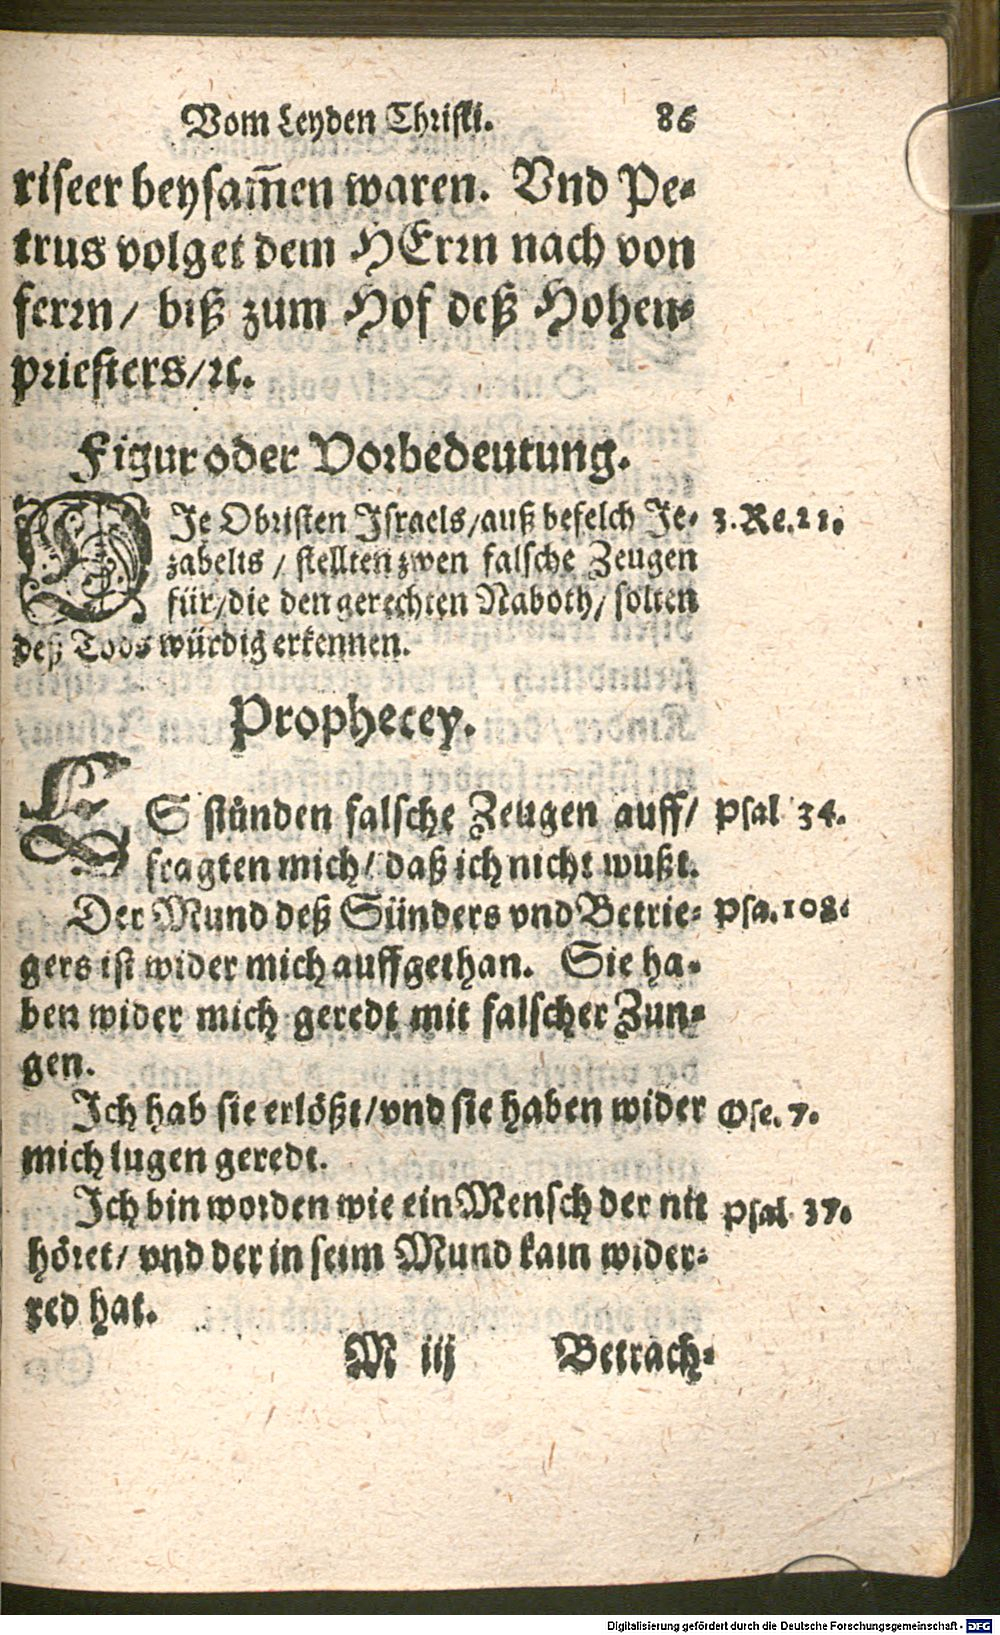 Vom Leyden Christi. 86
riseer beysam̃en waren. Vnd Pe-
trus volget dem HErrn nach von
ferrn/ biß zum Hof deß Hohen-
priesters/ꝛc.
Figur oder Vorbedeutung.
DJe Obristen Jsraels/auß befelch Je- 3. Re. 21.
zabelis / stellten zwen falsche Zeugen
für/die den gerechten Naboth/ solten
deß Tods würdig erkennen.
Prophecey.
ES stůnden falsche Zeugen auff/ Psal 34.
fragten mich/ daß ich nicht wußt.
Der Mund deß Sünders vnd Betrie- Psa. 108.
gers ist wider mich auffgethan. Sie ha-
ben wider mich geredt mit falscher Zun-
gen.
Jch hab sie erlößt/vnd sie haben wider Ose. 7.
mich lugen geredt.
Jch bin worden wie ein Mensch der nit Psal 37.
höret/ vnd der in seim Mund kain wider-
red hat.
M iij Betrach-
Digitalisierung gefördert durch die Deutsche Forschungsgemeinschaft - DFG